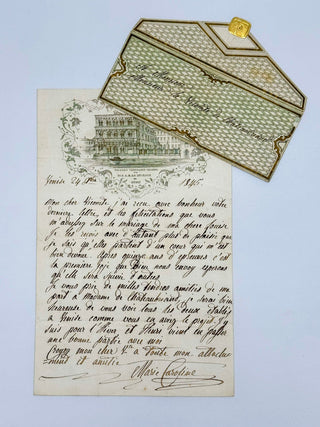 A Monsieur
Monsieur le Vicomte de Chateaubriand
Venise 24 9bre 1845.
Mon cher Vicomte, j'ai reçu avec bonheur votre
dernière lettre, et les félicitations que vous
m'adressez sur le mariage de ma chère Louise.
Je les reçois avec d'autant plus de plaisir que
je sais qu'elles partent d'un cœur qui m'est
bien dévoué. Après quinze ans d'épreuves c'est
la première joie que Dieu nous envoy espérons
qu'elle sera suivie d'autres.
Je vous prie de milles tendres amitiés de ma
part à Madame de Chateaubriand, je serai bien
heureuse de vous voir tous les Deux établis
à Venise comme vous en avez le projet j'y
suis pour l'hiver, et Henri vient en passer
une bonne partie avec moi
Croyez mon cher Vte à toute mon attache
ment et amitié
Marie Caroline